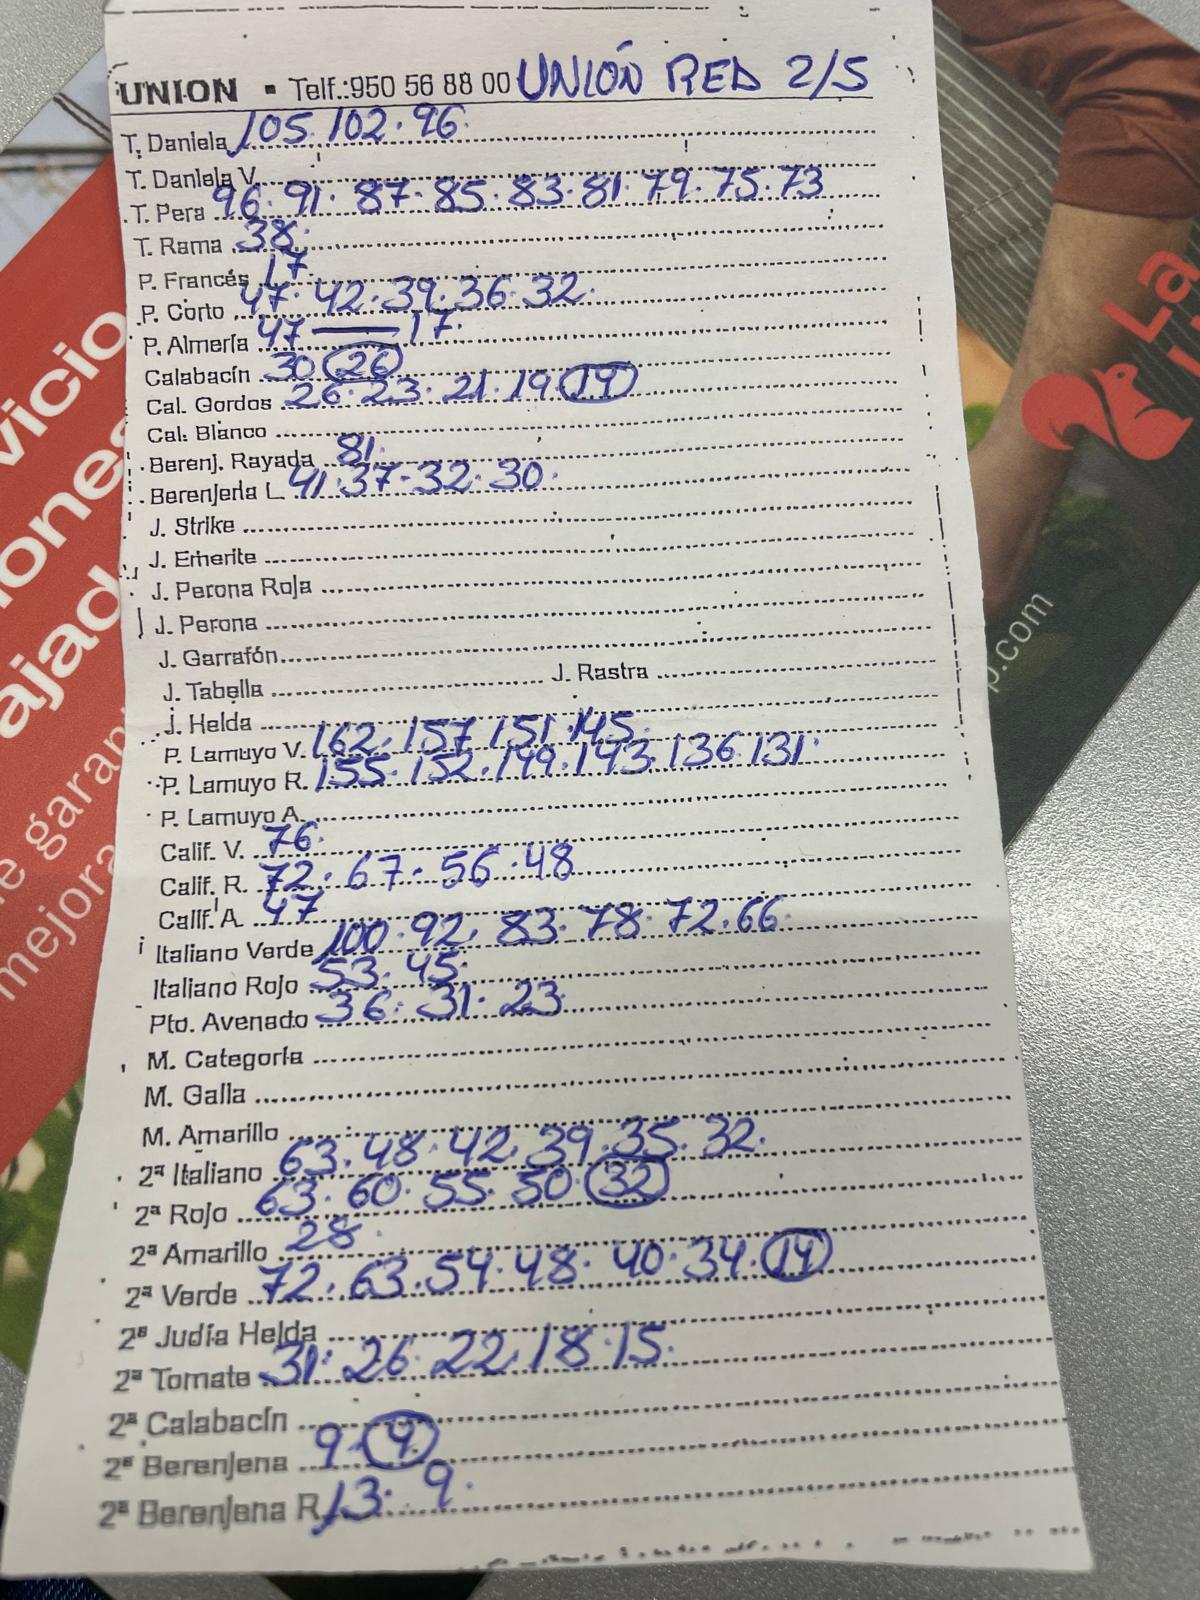 UNION - Telf.:950 56 88 00 UNIÓN RED 2/5
T. Daniela 105. 102. 96.
T. Daniela V.
T. Pera 96. 91. 87. 85. 83. 81. 79. 75. 73
T. Rama 38.
P. Francés 17.
P. Corto 47. 42. 39. 36. 32.
P. Almería 47 — 17.
Calabacín 30 26
Cal. Gordos 26. 23. 21. 19. 14
Cal. Blanco
Berenj. Rayada 81.
Berenjena L. 41. 37. 32. 30.
J. Strike
J. Emerite
J. Perona Roja
J. Perona
J. Garrafón
J. Tabella J. Rastra
J. Helda
P. Lamuyo V. 162. 157. 151. 145.
P. Lamuyo R. 155. 152. 149. 143. 136. 131.
P. Lamuyo A.
Calif. V. 76.
Calif. R. 72. 67. 56. 48
Calif. A. 47
Italiano Verde 100. 92. 83. 78. 72. 66.
Italiano Rojo 53. 45.
Pto. Avenado 36. 31. 23.
M. Categoría
M. Galla
M. Amarillo
2ª Italiano 63. 48. 42. 39. 35. 32.
2ª Rojo 63. 60. 55. 50. 32
2ª Amarillo 28.
2ª Verde 72. 63. 54. 48. 40. 34. 14
2ª Judía Helda
2ª Tomate 31. 26. 22. 18. 15.
2ª Calabacín
2ª Berenjena 9. 4.
2ª Berenjena R. 13. 9.
vicio
ajad
e garan
mejora
La
p.com